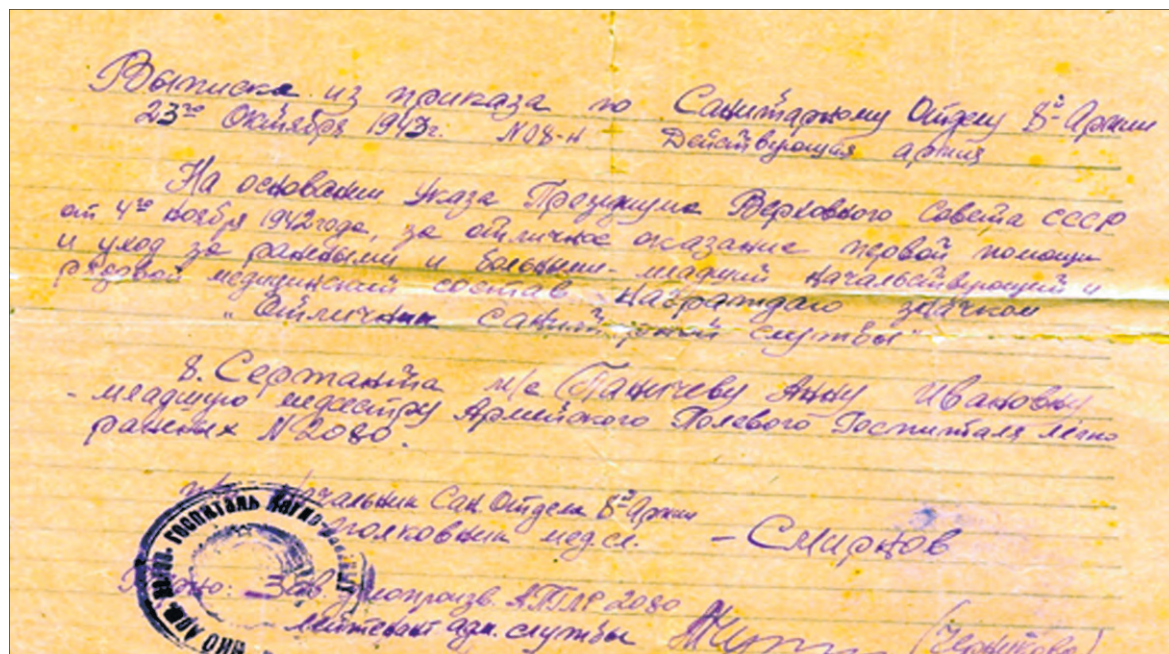 Выписка из приказа по Санитарному Отделу 8й Армии
23го Октября 1943г. №08-н Действующая армия
На основании Указа Президиума Верховного Совета СССР
от 4го ноября 1942 года, за отличное оказание первой помощи
и уход за ранеными и больными - младший начальствующий и
рядовой медицинский состав награждаю значком
"Отличник санитарной службы"
8. Сержанта м/с Паничеву Анну Ивановну
- младшую медсестру Армейского Полевого Госпиталя легко
раненых №2080.
Начальник Сан Отдела 8й Армии
полковник мед.сл. - Смирнов
Зав. делопроизв. АПГЛР 2080
лейтенант адм. службы
госпиталь легко-раненых
НКО